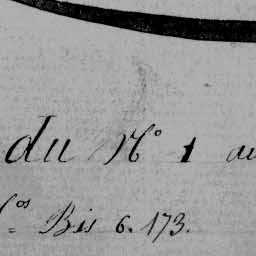 du N° 1 au
N.os Bis 6. 173.